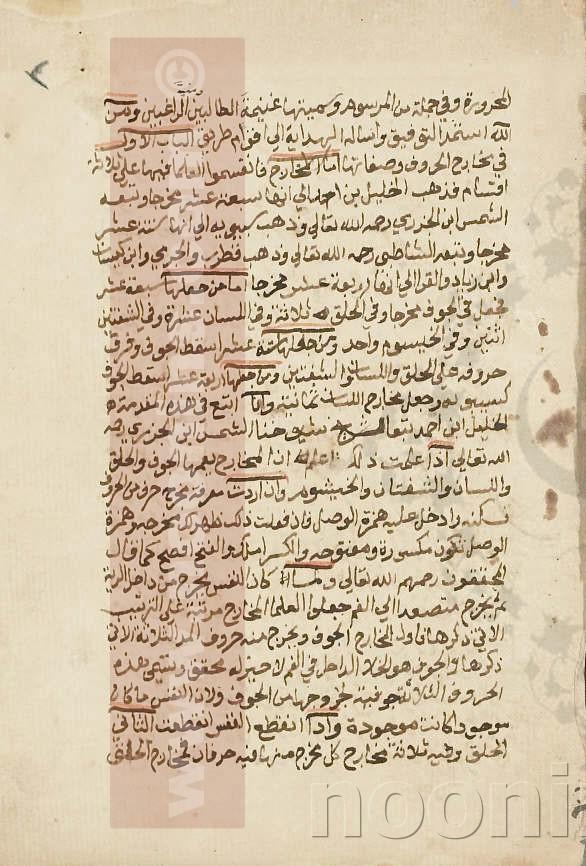 المحرورة وفي جملة من المرسوم وسميتها غنية الطالبين ومنية الراغبين ومن
الله استمد التوفيق واساله الهداية الى اقوام طريق الباب الاول
في مخارج الحروف وصفاتها اما المخارج فانقسموا العلما فيها على ثلاثة
اقسام فذهب الخليل بن احمد الى انها سبعة عشر مخرجا وتبعه
الشمس ابن الجزري رحمه الله تعالى وذهب سيبويه الى انها ستة عشر
مخرجا وتبعه الشاطبي رحمه الله تعالى وذهب قطرب والجرمي وابن كيسان
وابن زياد والفرا الى انها اربعة عشر مخرجا اما من جعلها سبعة عشر
فجعل في الجوف مخرجا وفي الحلق ثلاثة وفي اللسان عشرة وفي الشفتين
اثنين وفي الخيشوم واحد ومن جعلها ستة عشر اسقط الجوف وفرق
حروفه على الحلق واللسان والشفتين ومن جعلها اربعة عشر اسقط الجوف
كسيبويه وجعل مخارج اللسان ثمانية وانا اتبع في هذه المقدمة
الخليل ابن احمد تبعا لشيخ شيوخنا الشمس ابن الجزري رحمه
الله تعالى اذا علمت ذلك اعلم ان المخارج يعمها الجوف والحلق
واللسان والشفتان والخيشوم وان اردت معرفة مخرج حرف من الحروف
فسكنه وادخل عليه همزة الوصل فان فعلت ذلك ظهر لك مخرجه وهمزة
الوصل تكون مكسورة ومفتوحه والكسر املك والفتح افصح كما قال
المحققون رحمهم الله تعالى ولما كان النفس يخرج من داخل الرية
ثم يخرج متصعدا الى الفم جعلوا العلما المخارج مرتبة على الترتيب
الاتي ذكرها فاول المخارج الجوف ويخرج منه حروف المد الثلاثة الاتي
ذكرها والجوف هو الخلا الداخل في الفم لا حيز له محقق وتسمى هذه
الحروف الثلاثة جوفية لخروجها من الجوف ولان النفس ما كان
موجودا كانت موجودة واذا انقطع النفس انقطعت الثاني
الحلق وفيه ثلاثة مخارج كل مخرج منها فيه حرفان فمخارج الحلق
nooni